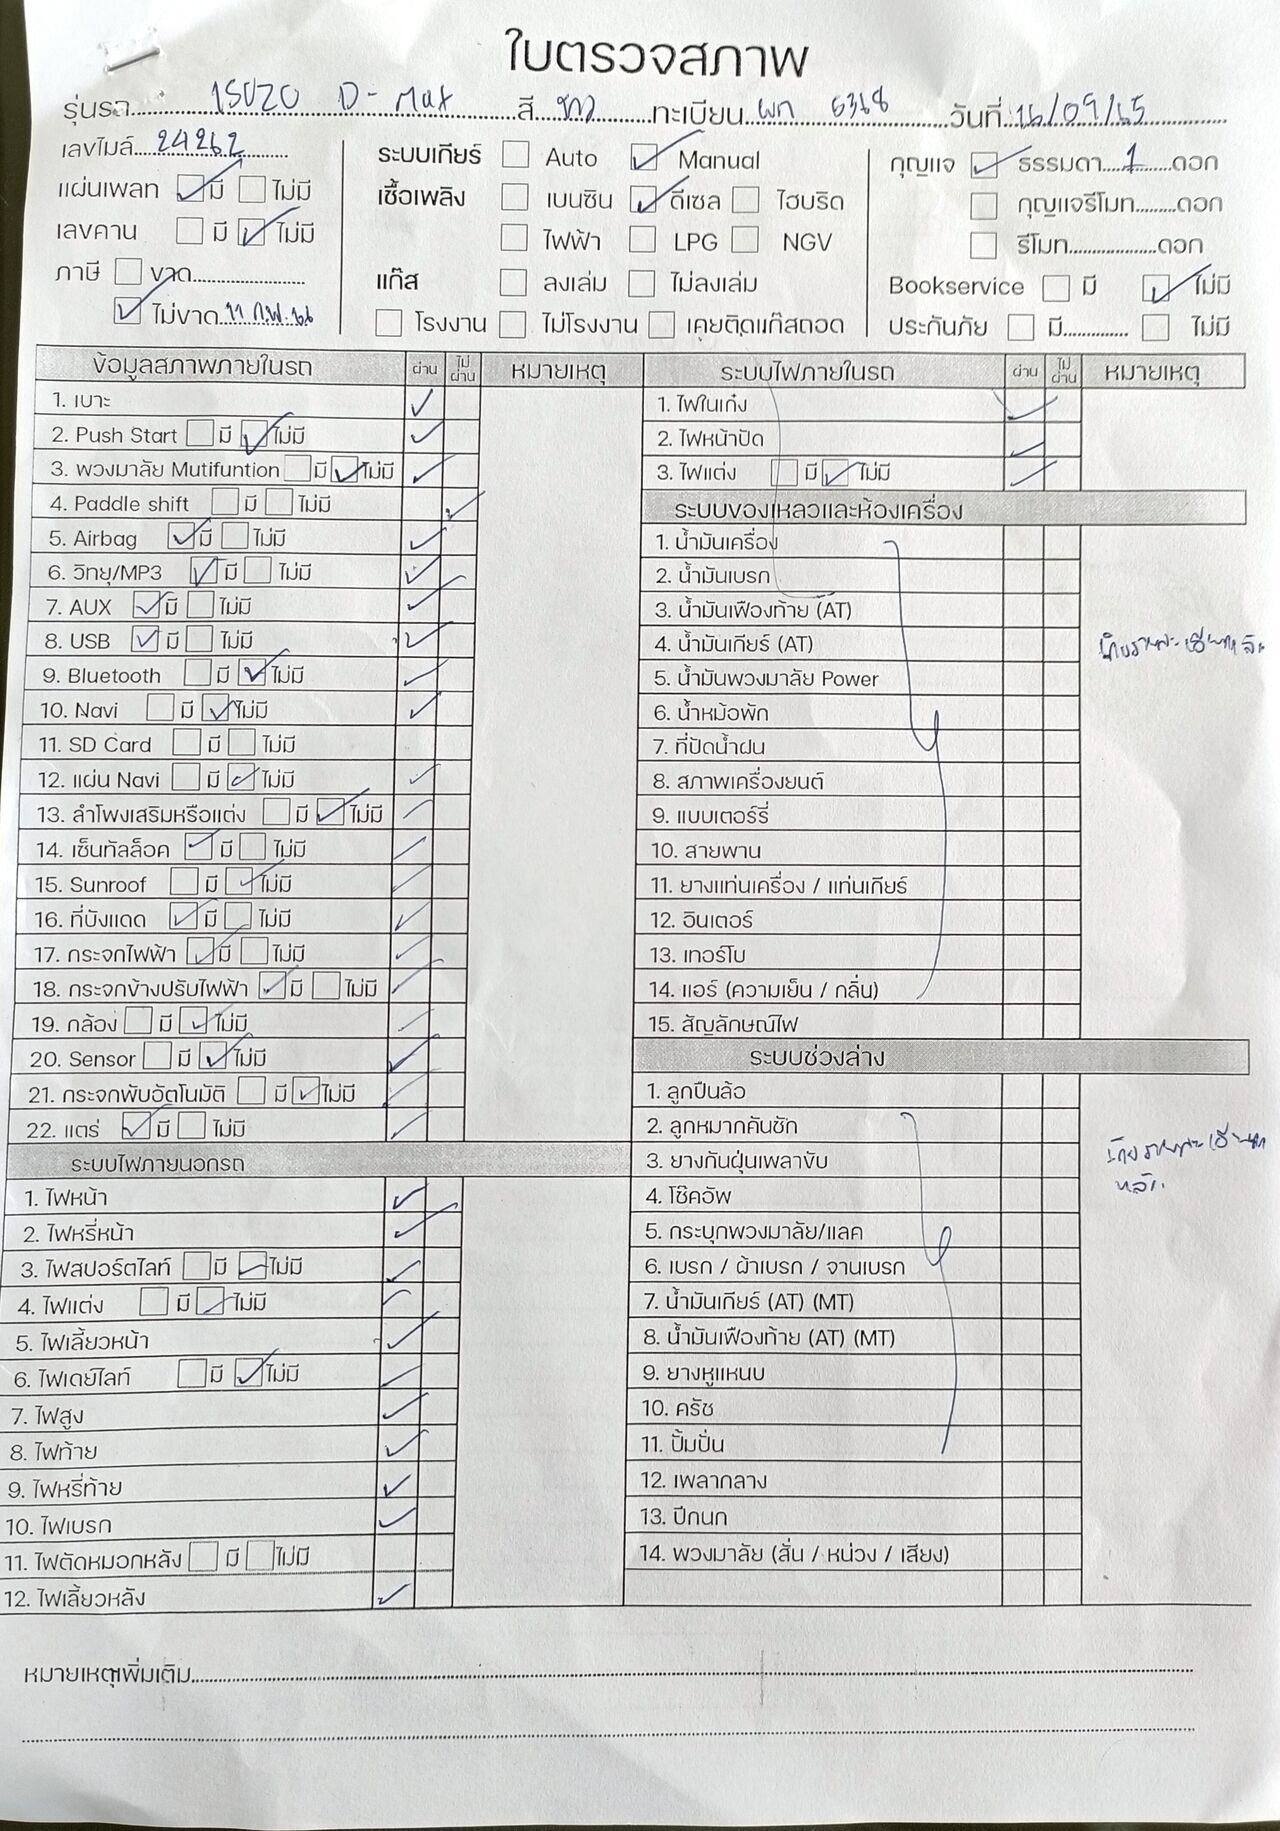 ใบตรวจสภาพ
รุ่นรถ ISUZU D-Max สี ขาว ทะเบียน ผก 6368 วันที่ 16/09/65
เลขไมล์ 24262
แผ่นเพลท มี ไม่มี
เลขคาน มี ไม่มี
ภาษี ขาด
ไม่ขาด 11 ก.พ. 66
ระบบเกียร์ Auto Manual
เชื้อเพลิง เบนซิน ดีเซล ไฮบริด
ไฟฟ้า LPG NGV
แก๊ส ลงเล่ม ไม่ลงเล่ม
โรงงาน ไม่โรงงาน เคยติดแก๊สถอด
กุญแจ ธรรมดา 1 ดอก
กุญแจรีโมท ดอก
รีโมท ดอก
Bookservice มี ไม่มี
ประกันภัย มี ไม่มี
ข้อมูลสภาพภายในรถ ผ่าน ไม่ผ่าน หมายเหตุ
1. เบาะ
2. Push Start มี ไม่มี
3. พวงมาลัย Mutifuntion มี ไม่มี
4. Paddle shift มี ไม่มี
5. Airbag มี ไม่มี
6. วิทยุ/MP3 มี ไม่มี
7. AUX มี ไม่มี
8. USB มี ไม่มี
9. Bluetooth มี ไม่มี
10. Navi มี ไม่มี
11. SD Card มี ไม่มี
12. แผ่น Navi มี ไม่มี
13. ลำโพงเสริมหรือแต่ง มี ไม่มี
14. เซ็นทัลล็อค มี ไม่มี
15. Sunroof มี ไม่มี
16. ที่บังแดด มี ไม่มี
17. กระจกไฟฟ้า มี ไม่มี
18. กระจกข้างปรับไฟฟ้า มี ไม่มี
19. กล้อง มี ไม่มี
20. Sensor มี ไม่มี
21. กระจกพับอัตโนมัติ มี ไม่มี
22. แตร่ มี ไม่มี
ระบบไฟภายนอกรถ
1. ไฟหน้า
2. ไฟหรี่หน้า
3. ไฟสปอร์ตไลท์ มี ไม่มี
4. ไฟแต่ง มี ไม่มี
5. ไฟเลี้ยวหน้า
6. ไฟเดย์ไลท์ มี ไม่มี
7. ไฟสูง
8. ไฟท้าย
9. ไฟหรี่ท้าย
10. ไฟเบรก
11. ไฟตัดหมอกหลัง มี ไม่มี
12. ไฟเลี้ยวหลัง
ระบบไฟภายในรถ ผ่าน ไม่ผ่าน หมายเหตุ
1. ไฟในเก๋ง
2. ไฟหน้าปัด
3. ไฟแต่ง มี ไม่มี
ระบบของเหลวและห้องเครื่อง
1. น้ำมันเครื่อง
2. น้ำมันเบรก
3. น้ำมันเฟืองท้าย (AT)
4. น้ำมันเกียร์ (AT)
5. น้ำมันพวงมาลัย Power
6. น้ำหม้อพัก
7. ที่ปัดน้ำฝน
8. สภาพเครื่องยนต์
9. แบบเตอร์รี่
10. สายพาน
11. ยางแท่นเครื่อง / แท่นเกียร์
12. อินเตอร์
13. เทอร์โบ
14. แอร์ (ความเย็น / กลิ่น)
15. สัญลักษณ์ไฟ
ระบบช่วงล่าง
1. ลูกปืนล้อ
2. ลูกหมากคันชัก
3. ยางกันฝุ่นเพลาขับ
4. โช๊คอัพ
5. กระบุกพวงมาลัย/แลค
6. เบรก / ผ้าเบรก / จานเบรก
7. น้ำมันเกียร์ (AT) (MT)
8. น้ำมันเฟืองท้าย (AT) (MT)
9. ยางหูแหนบ
10. ครัช
11. ปั้มปั่น
12. เพลากลาง
13. ปีกนก
14. พวงมาลัย (สั่น / หน่วง / เสียง)
หมายเหตุเพิ่มเติม